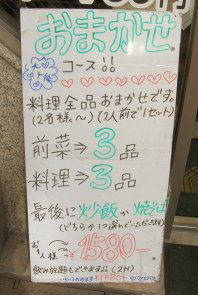 おまかせ
大人気
コース!!
料理全品おまかせです。
(2名様〜)(2人前で1セット)
前菜⇒3品
料理⇒3品
最後に炒飯か焼そば
(どちらか1つ選んでいただきます)
お1人様 ¥1580-
飲み放題もできます♬(2H)